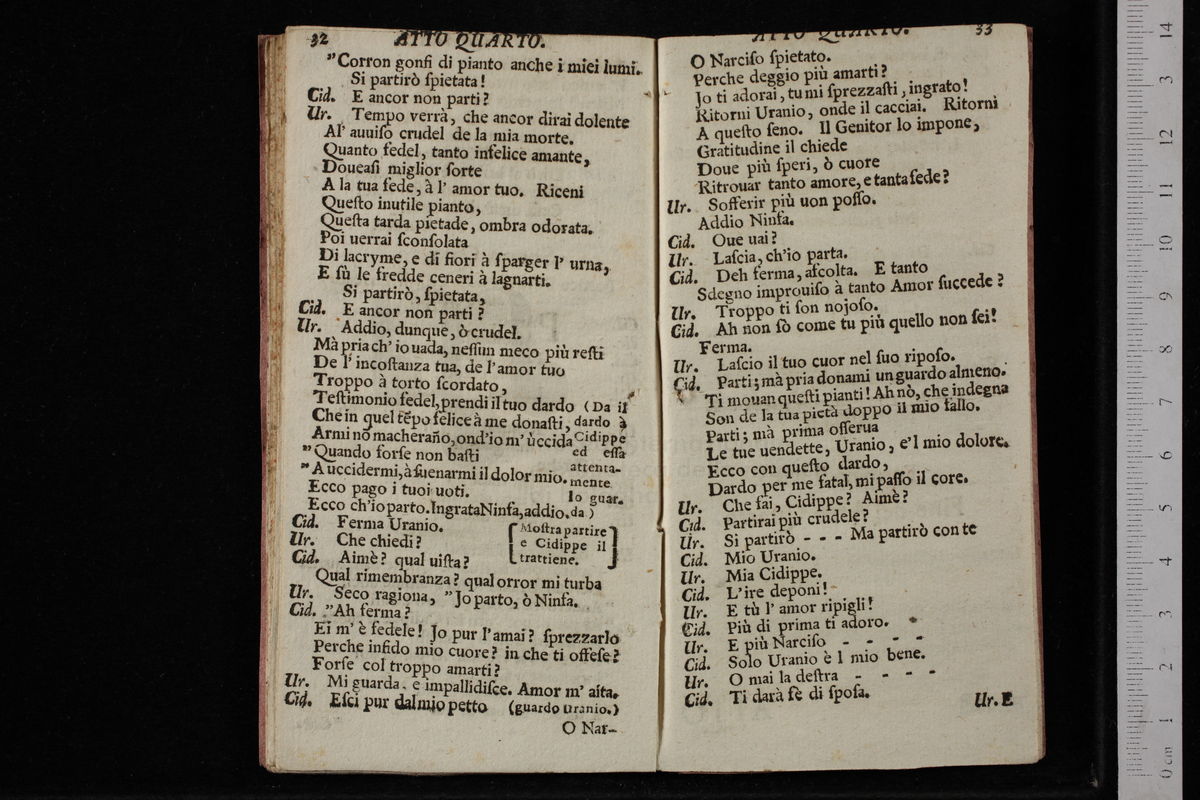 32 ATTO QUARTO.
"Corron gonfi di pianto anche i miei lumi.
Si partirò ſpietata!
Cid. E ancor non parti?
Ur. Tempo verrà, che ancor dirai dolente
Al' auuiſo crudel de la mia morte.
Quanto fedel, tanto infelice amante,
Doueaſi miglior ſorte
A la tua fede, à l' amor tuo. Riceni
Queſto inutile pianto,
Queſta tarda pietade, ombra odorata.
Poi uerrai ſconſolata
Di lacryme, e di fiori à ſparger l' urna,
E sù le fredde ceneri à lagnarti.
Si partirò, ſpietata,
Cid. E ancor non parti?
Ur. Addio, dunque, ò crudel.
Mà pria ch' io uada, neſſun meco più reſti
De l' incoſtanza tua, de l'amor tuo
Troppo à torto ſcordato,
Teſtimonio fedel, prendi il tuo dardo (Da il
Che in quel tẽpo felice à me donaſti, dardo à
Armi nõ macherañ̃o, ond'io m' uccida Cidippe
"Quando forſe non baſti ed eſſa
"A uccidermi, à ſuenarmi il dolor mio. attenta-
mente
Ecco pago i tuoi uoti. lo guar.
Ecco ch'io parto. Ingrata Ninfa, addio. da )
Cid. Ferma Uranio. [Moſtra partire
Ur. Che chiedi? e Cidippe il
Cid. Aimè? qual uiſta? trattiene.]
Qual rimembranza? qual orror mi turba
Ur. Seco ragiona, "Jo parto, ò Ninfa.
Cid. "Ah ferma?
Ei m' è fedele! Jo pur l'amai? ſprezzarlo
Perche infido mio cuore? in che ti offeſe?
Forſe col troppo amarti?
Ur. Mi guarda. e impallidiſce. Amor m' aita.
Cid. Eſci pur dal mio petto (guardo Uranio.)
O Nar-
ATTO QUARTO. 33
O Narciſo ſpietato.
Perche deggio più amarti?
Jo ti adorai, tu mi ſprezzaſti, ingrato!
Ritorni Uranio, onde il cacciai. Ritorni
A queſto ſeno. Il Genitor lo impone,
Gratitudine il chiede
Doue più ſperi, ò cuore
Ritrouar tanto amore, e tanta fede?
Ur. Sofferir più uon poſſo.
Addio Ninfa.
Cid. Oue uai?
Ur. Laſcia, ch'io parta.
Cid. Deh ferma, aſcolta. E tanto
Sdegno improuiſo à tanto Amor ſuccede?
Ur. Troppo ti ſon nojoſo.
Cid. Ah non sò come tu più quello non ſei!
Ferma.
Ur. Laſcio il tuo cuor nel ſuo ripoſo.
Cid. Parti; mà pria donami un guardo almeno.
Ti mouan queſti pianti! Ah nò, che indegna
Son de la tua pietà doppo il mio fallo.
Parti; mà prima oſſerua
Le tue uendette, Uranio, e'l mio dolore.
Ecco con queſto dardo,
Dardo per me fatal, mi paſſo il core.
Ur. Che fai, Cidippe? Aimè?
Cid. Partirai più crudele?
Ur. Si partirò - - - Ma partirò con te
Cid. Mio Uranio.
Ur. Mia Cidippe.
Cid. L'ire deponi!
Ur. E tù l' amor ripigli!
Cid. Più di prima ti adoro.
Ur. E più Narciſo - - - -
Cid. Solo Uranio è l mio bene.
Ur. O mai la deſtra - - - -
Cid. Ti darà fè di ſpoſa.
Ur. E
14 3 12 11 10 9 8 7 6 5 4 3 2 1 0 cm